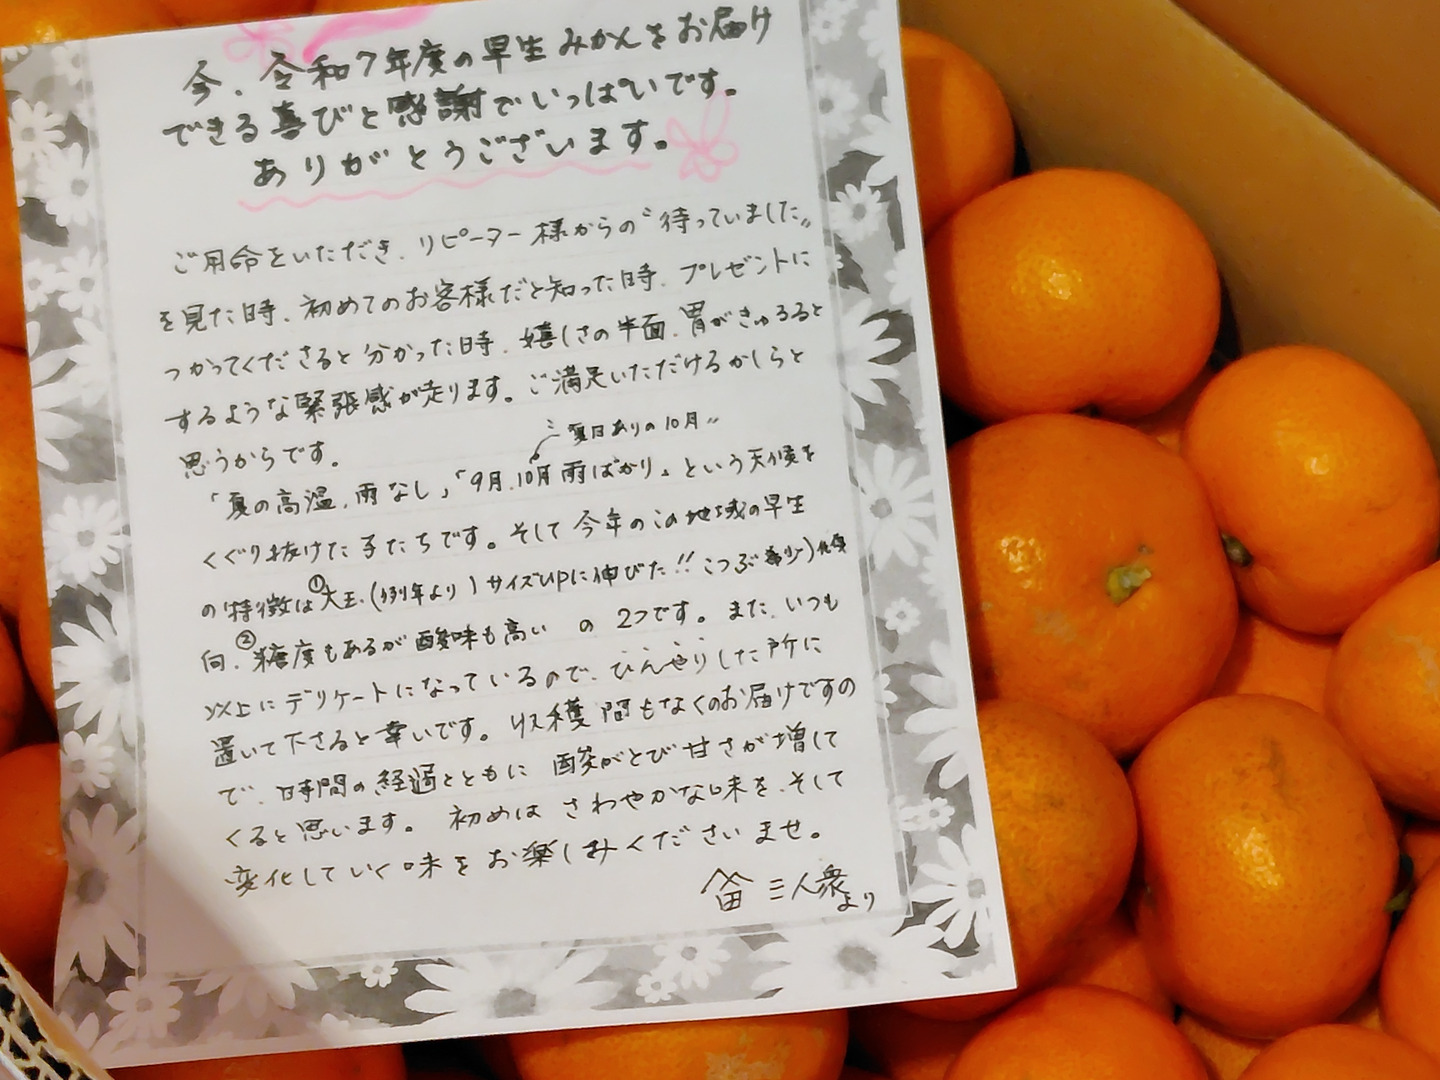 今、令和7年度の早生みかんをお届け
できる喜びと感謝でいっぱいです。
ありがとうございます。
ご用命をいただき、リピーター様からの〝待っていました〟
を見た時、初めてのお客様だと知った時、プレゼントに
つかってくださると分かった時、嬉しさの半面、胃がきゅるると
するような緊張感が走ります。ご満足いただけるかしらと
思うからです。
〝夏日ありの10月〟
「夏の高温、雨なし」「9月、10月雨ばかり」という天候を
くぐり抜けた子たちです。そして今年のこの地域の早生
の特徴は①大玉、(例年より)サイズupに伸びた!!こつぶ希少)傾
向、②糖度もあるが酸味も高い の 2つです。また、いつも
以上にデリケートになっているので、ひんやりした所に
置いて下さると幸いです。収穫間もなくのお届けですの
で、時間の経過とともに 酸がとび甘さが増して
くると思います。 初めは さわやかな味を、そして
変化していく味をお楽しみくださいませ。
三人衆
より